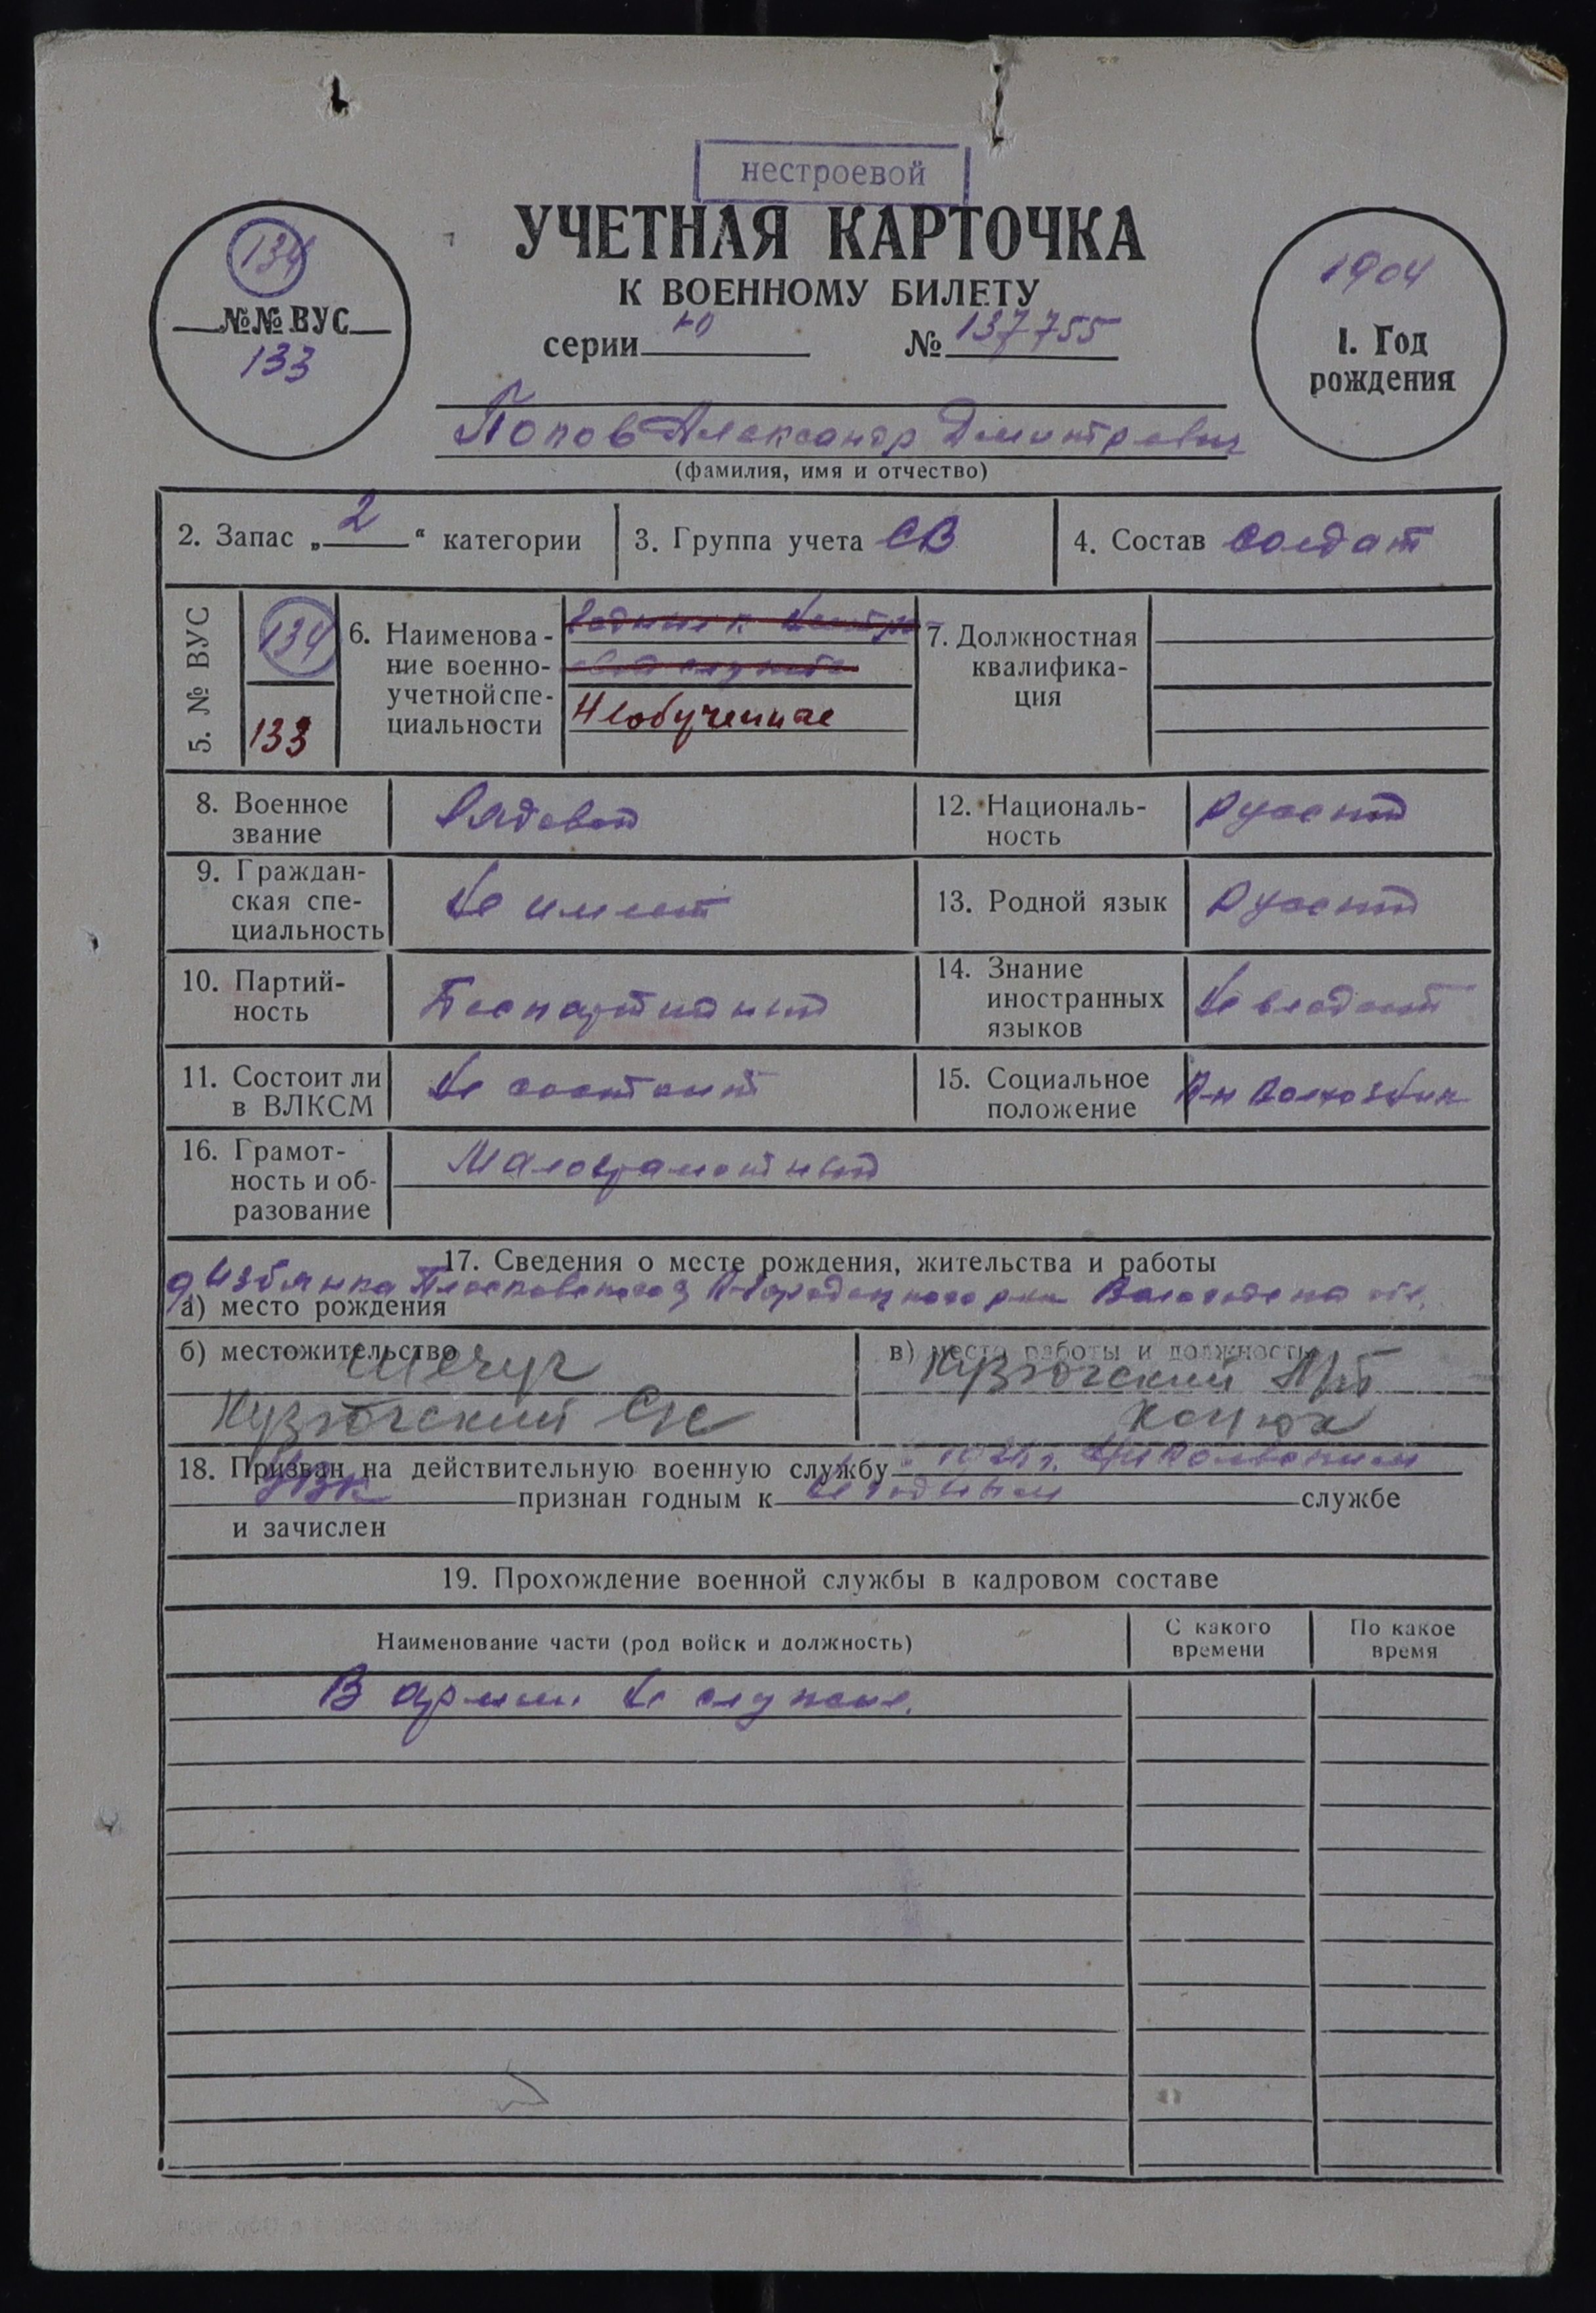 нестроевой
УЧЕТНАЯ КАРТОЧКА
К ВОЕННОМУ БИЛЕТУ
серии № 137755
134
№№ ВУС
133
1904
1. Год
рождения
Попов Александр Дмитревич
(фамилия, имя и отчество)
2. Запас „2“ категории
3. Группа учета СВ
4. Состав солдат
5. № ВУС
134
133
6. Наименова-
ние военно-
учетной спе-
циальности
Необученные
7. Должностная
квалифика-
ция
8. Военное
звание
Рядовой
9. Граждан-
ская спе-
циальность
Не имеет
10. Партий-
ность
Беспартийный
11. Состоит ли
в ВЛКСМ
Не состоит
12. Националь-
ность
Русский
13. Родной язык
Русский
14. Знание
иностранных
языков
Не владеет
15. Социальное
положение
16. Грамот-
ность и об-
разование
Малограмотный
17. Сведения о месте рождения, жительства и работы
д Избянка
а) место рождения
б) местожительство
Шечуг
Кузюгский
в) место работы и должность
Кузюгский
Конюх
18. Призван на действительную военную службу
признан годным к Не годным службе
и зачислен
19. Прохождение военной службы в кадровом составе
Наименование части (род войск и должность)
С какого
времени
По какое
время
В армии не служил.